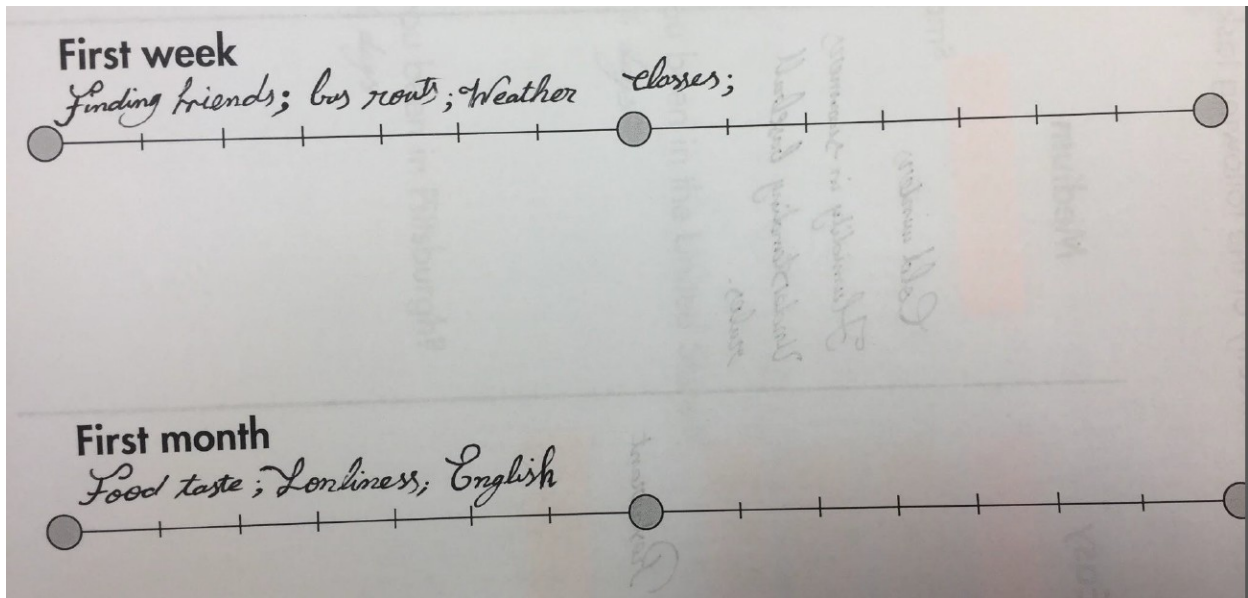 First week
Finding friends; bus routs; Weather classes;
First month
Food taste; Lonliness; English